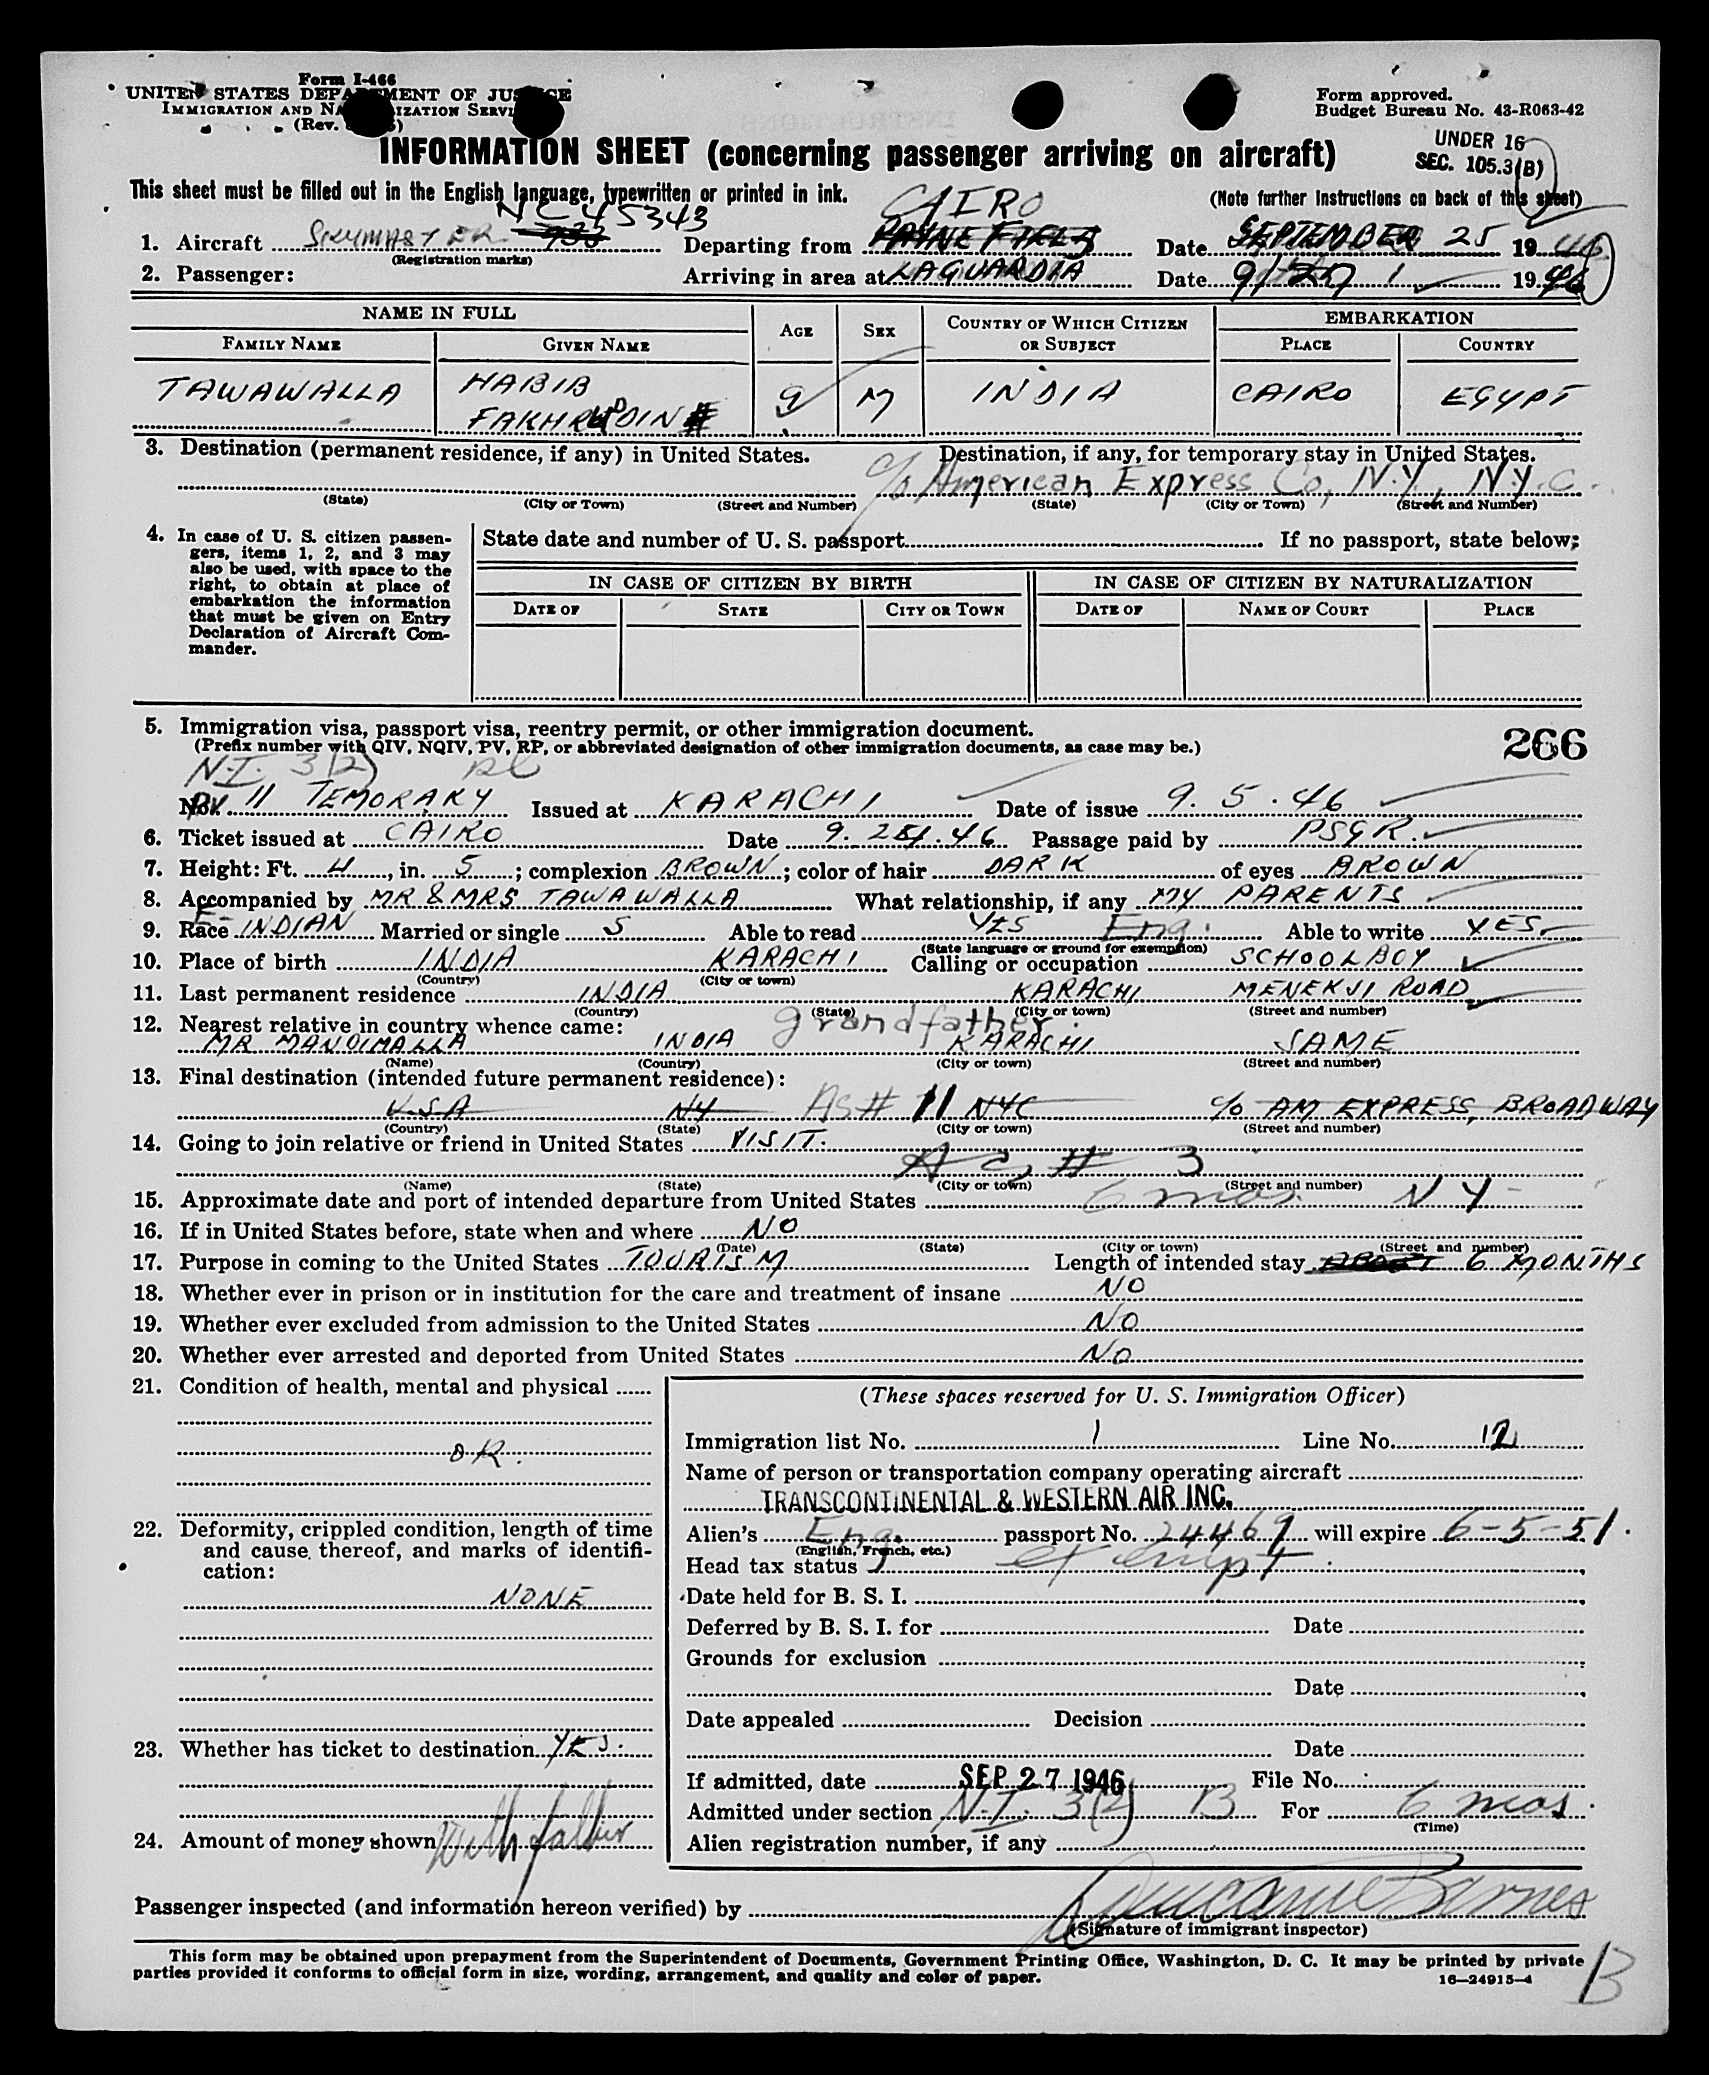 Form I-466
UNITED STATES DEPARTMENT OF JUSTICE
IMMIGRATION AND NATURALIZATION SERVICE
(Rev.
Form approved.
Budget Bureau No. 43-R063-42
UNDER 16
SEC. 105.3(B)
INFORMATION SHEET (concerning passenger arriving on aircraft)
This sheet must be filled out in the English language, typewritten or printed in ink.
(Note further instructions on back of this sheet)
NC 45343 CAIRO
1. Aircraft SKYMASTER 933 Departing from PAYNE FIELD Date SEPTEMBER 25 1946
(Registration marks)
2. Passenger: Arriving in area at LAGUARDIA Date 9/27/ 1946
NAME IN FULL AGE SEX COUNTRY OF WHICH CITIZEN OR SUBJECT EMBARKATION
FAMILY NAME GIVEN NAME PLACE COUNTRY
TAWAWALLA HABIB FAKHRUDDIN 9 M INDIA CAIRO EGYPT
3. Destination (permanent residence, if any) in United States. Destination, if any, for temporary stay in United States.
c/o American Express Co, N.Y., N.Y.C.
(State) (City or Town) (Street and Number) (State) (City or Town) (Street and Number)
4. In case of U. S. citizen passengers, items 1, 2, and 3 may also be used, with space to the right, to obtain at place of embarkation the information that must be given on Entry Declaration of Aircraft Commander.
State date and number of U. S. passport If no passport, state below:
IN CASE OF CITIZEN BY BIRTH IN CASE OF CITIZEN BY NATURALIZATION
DATE OF STATE CITY OR TOWN DATE OF NAME OF COURT PLACE
5. Immigration visa, passport visa, reentry permit, or other immigration document.
(Prefix number with QIV, NQIV, PV, RP, or abbreviated designation of other immigration documents, as case may be.)
266
N.I. 3(2)
No. PV 11 TEMORARY Issued at KARACHI Date of issue 9.5.46
6. Ticket issued at CAIRO Date 9.24.46 Passage paid by PSGR.
7. Height: Ft. 4, in. 5; complexion BROWN; color of hair DARK of eyes BROWN
8. Accompanied by MR & MRS TAWAWALLA What relationship, if any MY PARENTS
9. Race E-INDIAN Married or single S Able to read YES Eng. Able to write YES
(State language or ground for exemption)
10. Place of birth INDIA KARACHI Calling or occupation SCHOOLBOY
(Country) (City or town)
11. Last permanent residence INDIA KARACHI MENEKJI ROAD
(Country) (State) (City or town) (Street and number)
12. Nearest relative in country whence came: grandfather.
MR MANDIWALLA INDIA KARACHI SAME
(Name) (Country) (City or town) (Street and number)
13. Final destination (intended future permanent residence):
USA NY As# 11 NYC c/o AM EXPRESS, BROADWAY
(Country) (State) (City or town) (Street and number)
14. Going to join relative or friend in United States VISIT.
As # 3
(Name) (State) (City or town) (Street and number)
15. Approximate date and port of intended departure from United States 6 mos. NY
16. If in United States before, state when and where NO
(Date) (State) (City or town) (Street and number)
17. Purpose in coming to the United States TOURISM Length of intended stay ABOUT 6 MONTHS
18. Whether ever in prison or in institution for the care and treatment of insane NO
19. Whether ever excluded from admission to the United States NO
20. Whether ever arrested and deported from United States NO
21. Condition of health, mental and physical
OK.
22. Deformity, crippled condition, length of time and cause thereof, and marks of identification:
NONE
23. Whether has ticket to destination YES.
24. Amount of money shown With father
(These spaces reserved for U. S. Immigration Officer)
Immigration list No. 1 Line No. 12
Name of person or transportation company operating aircraft
TRANSCONTINENTAL & WESTERN AIR INC.
Alien's Eng. passport No. 24469 will expire 6-5-51.
(English, French, etc.)
Head tax status exempt
Date held for B. S. I.
Deferred by B. S. I. for Date
Grounds for exclusion
Date
Date appealed Decision
Date
If admitted, date SEP 27 1946 File No.
Admitted under section N.I. 3(2) B For 6 mos.
(Time)
Alien registration number, if any
Passenger inspected (and information hereon verified) by Barnes
(Signature of immigrant inspector)
This form may be obtained upon prepayment from the Superintendent of Documents, Government Printing Office, Washington, D. C. It may be printed by private
parties provided it conforms to official form in size, wording, arrangement, and quality and color of paper.
16—24915-4
B